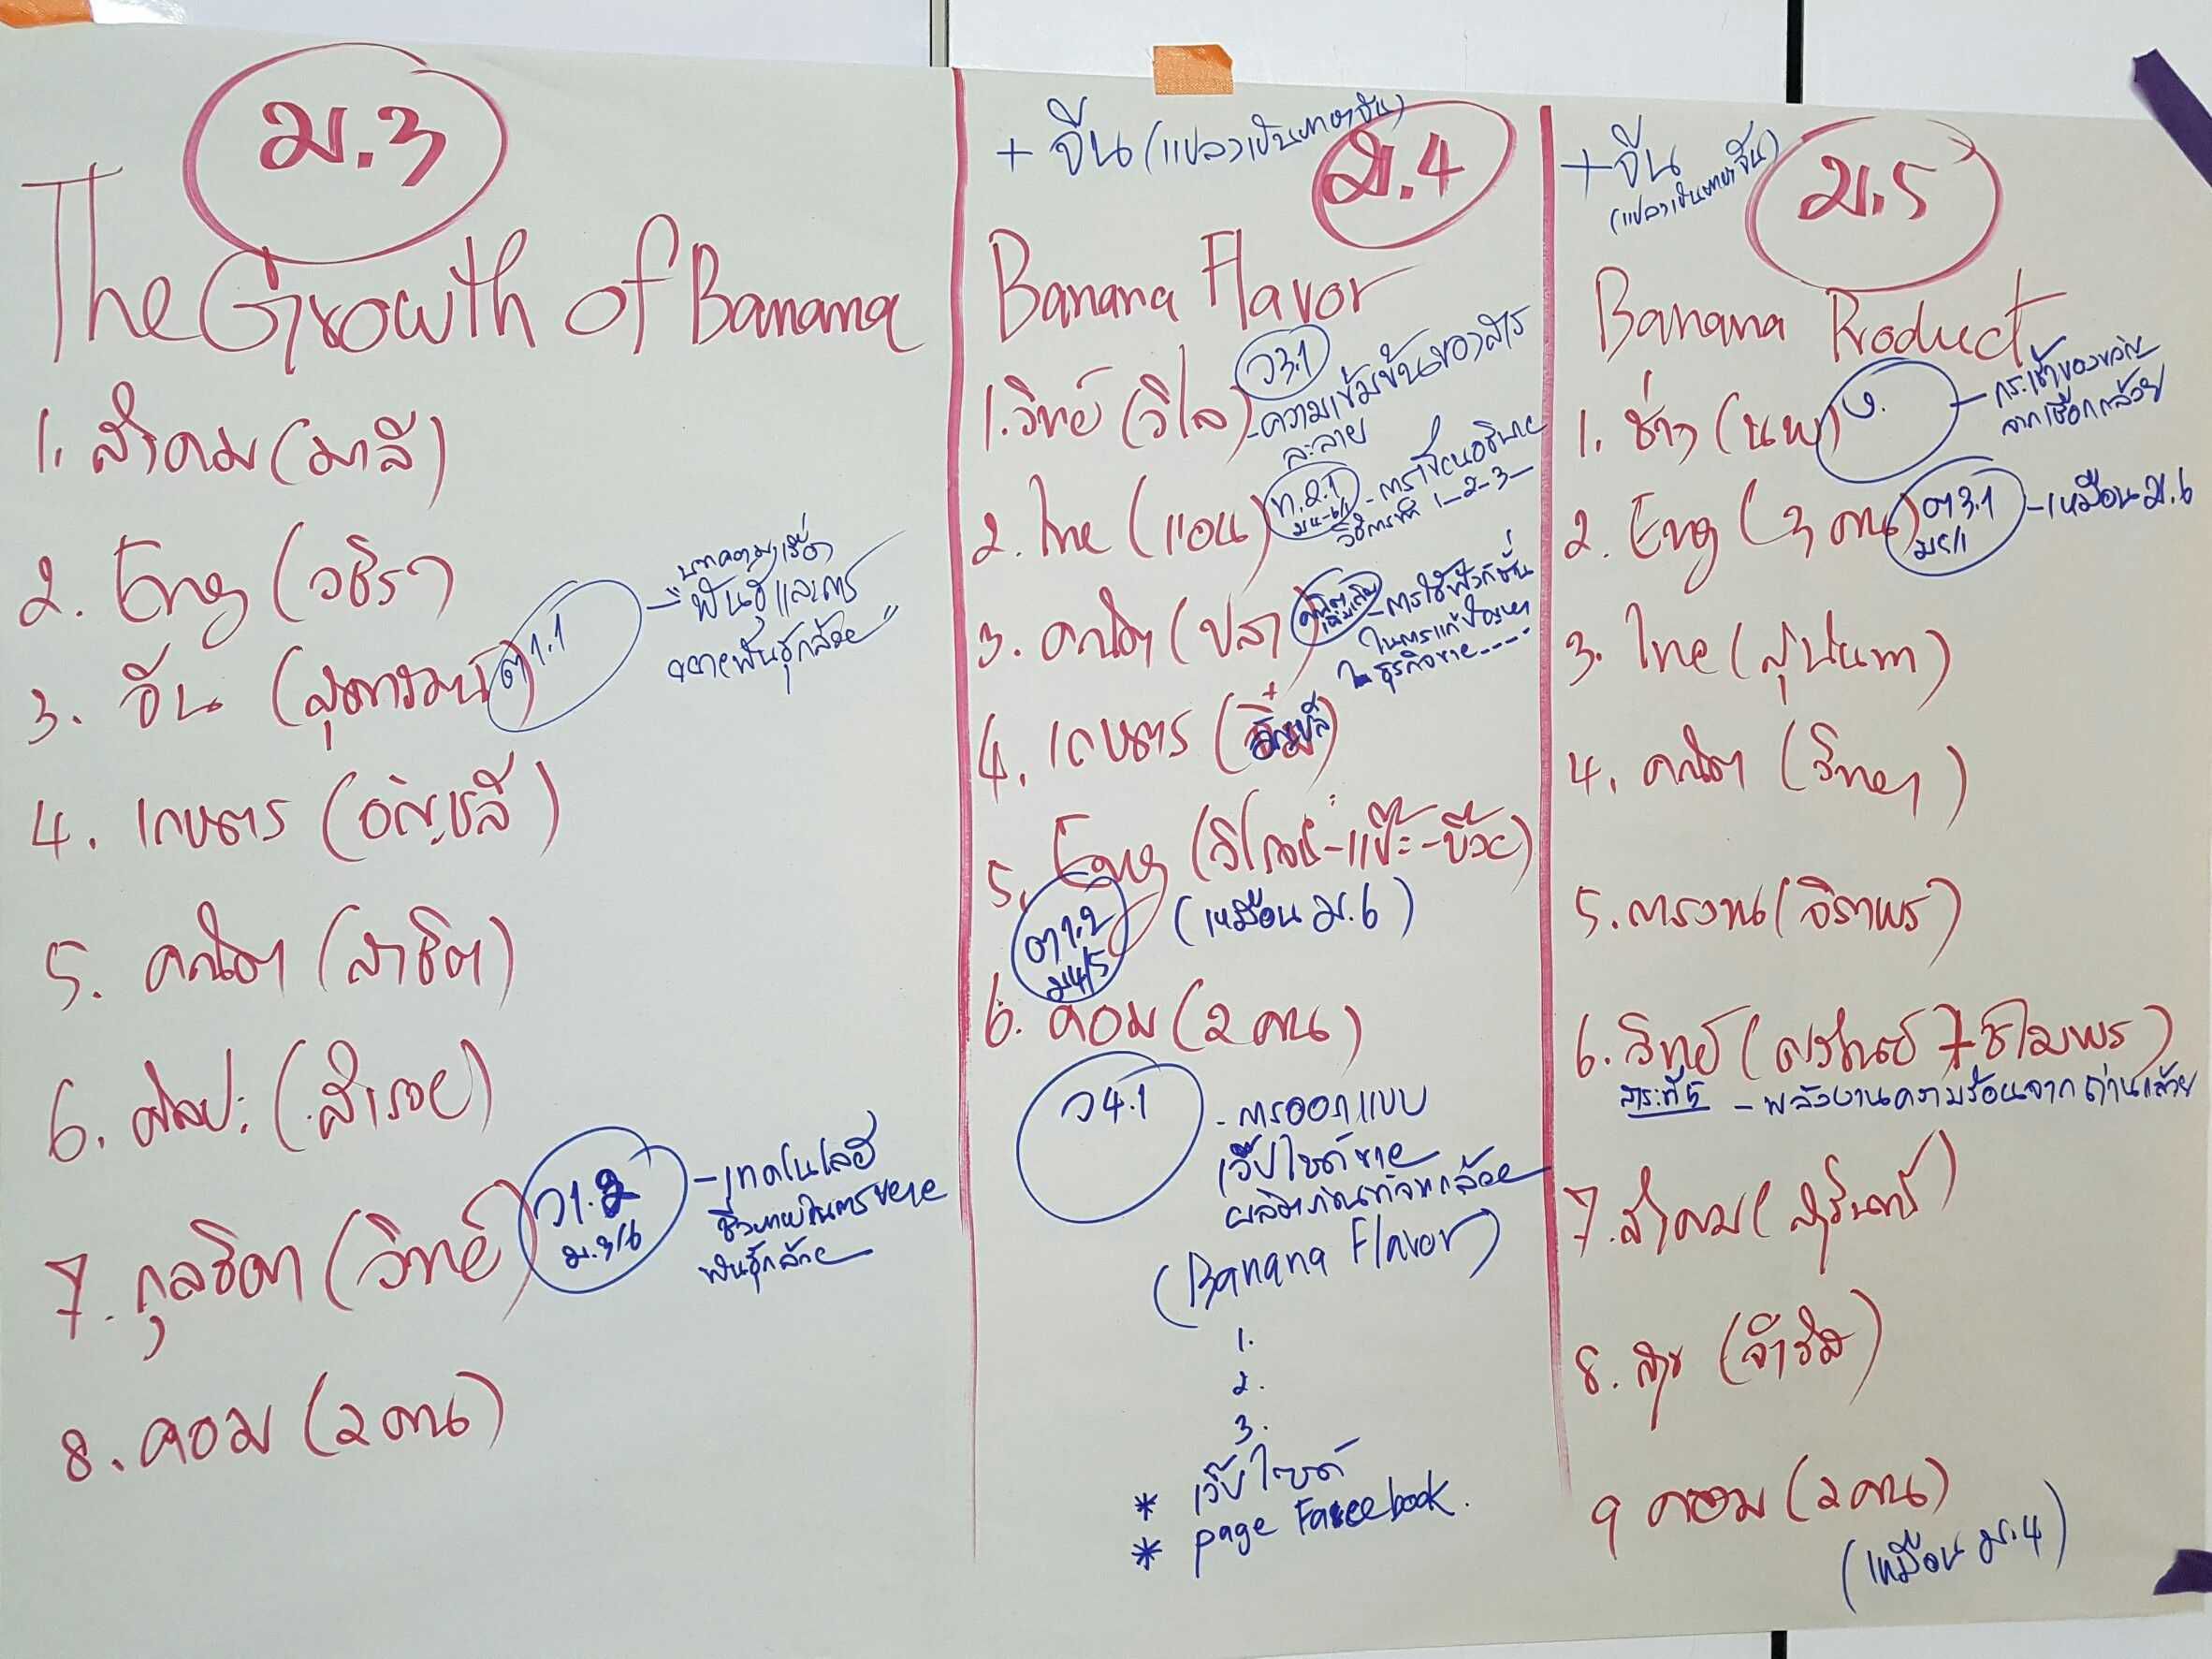 ม.3
The Growth of Banana
1. สังคม (มาลี)
2. Eng (วชิรา)
3. จีน (สุดารวรรณ) ต1.1
- บทความเรื่อง
"พันธุ์และการ
ขยายพันธุ์กล้วย"
4. เกษตร (อัญชลี)
5. คณิต (สาธิต)
6. ศิลปะ (สำรวย)
7. กุลธิดา (วิทย์) ว1.2
ม.3/6
- เทคโนโลยี
ชีวภาพในการขยาย
พันธุ์กล้วย
8. คอม (2 คน)
+ จีน (แปลเป็นภาษาจีน)
ม.4
Banana Flavor
1. วิทย์ (วิไล) ว3.1
- ความเข้มข้นของสาร
ละลาย
2. ไทย (แอน) ท.2.1
ม4-6/1
- การเขียนอธิบาย
วิธีการทำ 1-2-3-
3. คณิต (ปลา) คณิต
เพิ่มเติม
- การใช้ฟังก์ชั่น
ในการแก้ปัญหา
ในธุรกิจขาย....
4. เกษตร (อัญชลี)
5. Eng (วิไลวรรณ์-แป๊ะ-บ๊วย)
ต1.2
ม4/5
(เหมือน ม.6)
6. คอม (2 คน)
ว4.1
- การออกแบบ
เว็ปไซด์ขาย
ผลิตภัณฑ์จากกล้วย
(Banana Flavor)
1.
2.
3.
* เว็ปไซด์
* page Facebook.
+ จีน
(แปลเป็นภาษาจีน)
ม.5
Banana Product
1. ช่าง (นพ) ง.
- กระเช้าของขวัญ
จากเชือกกล้วย
2. Eng (3 คน) ต3.1
ม5/1
- เหมือน ม.6
3. ไทย (สุปนภา)
4. คณิต (วิทยา)
5. การงาน (จิราพร)
6. วิทย์ ( + ชไมพร)
สาระที่ 5 - พลังงานความร้อนจากถ่านกล้วย
7. สังคม (สุรินทร์)
8. สุข (จำรัส)
9 คอม (2 คน)
(เหมือน ม.4)